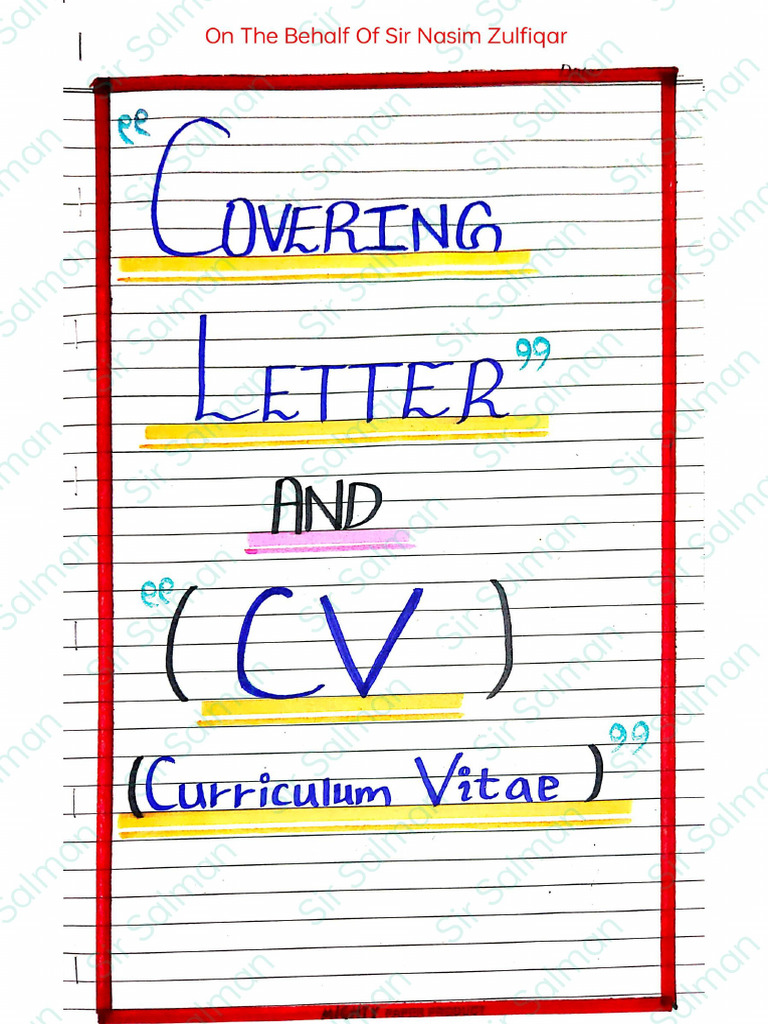 On The Behalf Of Sir Nasim Zulfiqar
“COVERING
LETTER”
AND
“(CV)
(Curriculum Vitae)”
Sir Salman